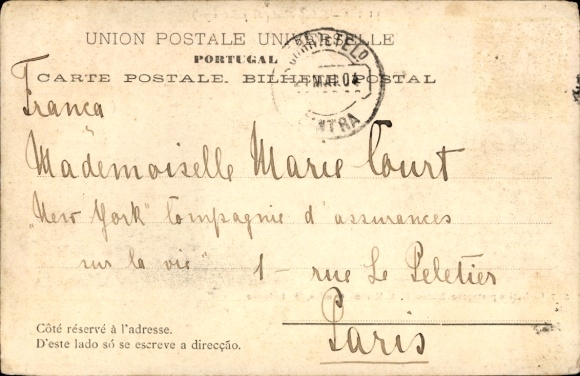 UNION POSTALE UNIVERSELLE
PORTUGAL
CARTE POSTALE. BILHETE POSTAL
MAR. 04
Franca
Mademoiselle Marie Court
"New York" Compagnie d'assurances
sur la vie" 1 - rue Le Peletier
Paris
Côté réservé à l'adresse.
D'este lado só se escreve a direcção.